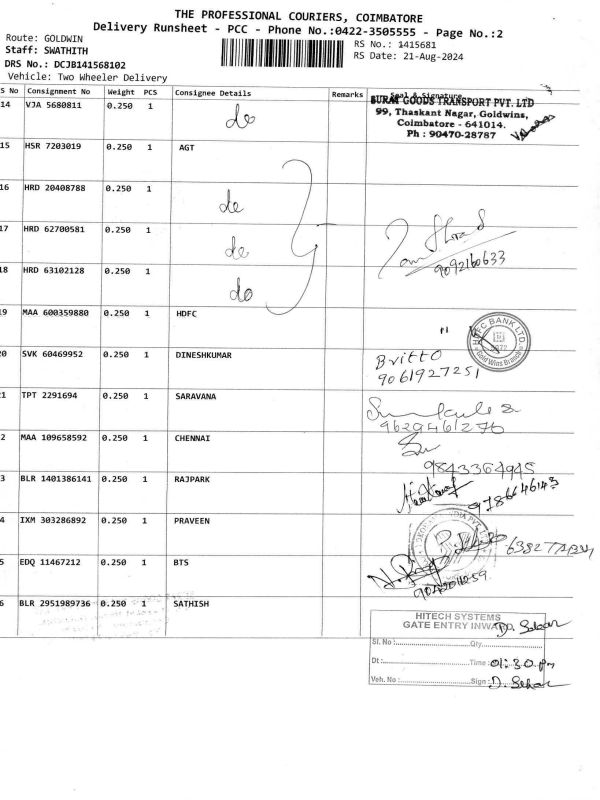 THE PROFESSIONAL COURIERS, COIMBATORE
Delivery Runsheet - PCC - Phone No.:0422-3505555 - Page No.:2
Route: GOLDWIN
RS No.: 1415681
Staff: SWATHITH
RS Date: 21-Aug-2024
DRS No.: DCJB141568102
Vehicle: Two Wheeler Delivery
S No Consignment No Weight PCS Consignee Details Remarks Seal & Signature
14 VJA 5680811 0.250 1 do
SURAT GOODS TRANSPORT PVT. LTD
99, Thaskant Nagar, Goldwins,
Coimbatore - 641014.
Ph : 90470-28787
15 HSR 7203019 0.250 1 AGT
16 HRD 20408788 0.250 1 do
17 HRD 62700581 0.250 1 do
9092160633
18 HRD 63102128 0.250 1 do
19 MAA 600359880 0.250 1 HDFC
HDFC BANK LTD.
Gold Wins Branch
20 SVK 60469952 0.250 1 DINESHKUMAR
Britto
9061927251
21 TPT 2291694 0.250 1 SARAVANA
9629461276
2 MAA 109658592 0.250 1 CHENNAI
9843364945
3 BLR 1401386141 0.250 1 RAJPARK
9786646143
4 IXM 303286892 0.250 1 PRAVEEN
5 EDQ 11467212 0.250 1 BTS
6 BLR 2951989736 0.250 1 SATHISH
HITECH SYSTEMS
GATE ENTRY INWARD
Sl. No : Qty
Dt : Time : 01:30 pm
Veh. No : Sign : D. Sekar